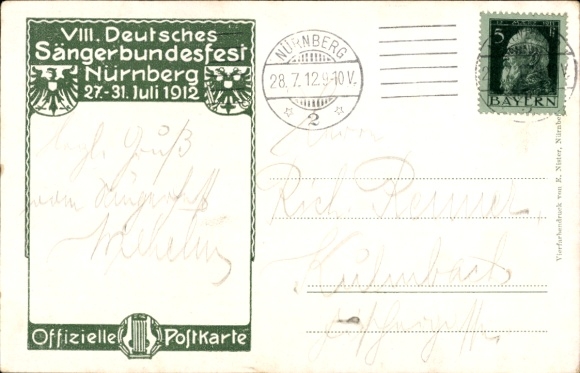 VIII. Deutsches
Sängerbundesfest
Nürnberg
27.-31. Juli 1912
Herzl. Gruß
vom Sängerfest
Wilhelm
Offizielle Postkarte
NÜRNBERG
28.7.12.9-10V.
2
5
BAYERN
Herrn
Rich. Renner,
Kulmbach
Vierfarbendruck von E. Nister, Nürnberg